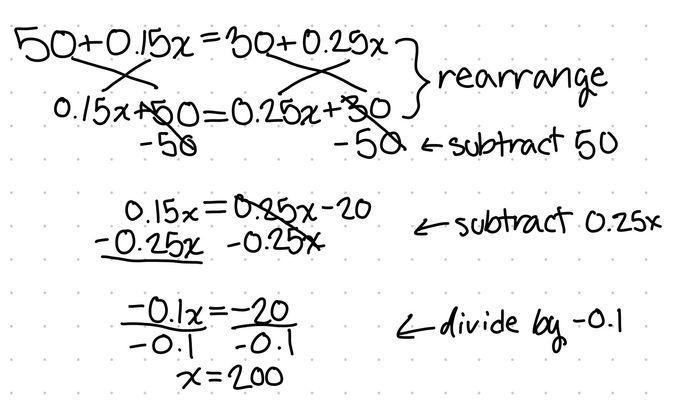 50+0.15x=30+0.25x
rearrange
0.15x+50=0.25x+30
-50 -50 ←subtract 50
0.15x=0.25x-20
-0.25x -0.25x ←subtract 0.25x
-0.1x=-20
-0.1 -0.1 ←divide by -0.1
x=200